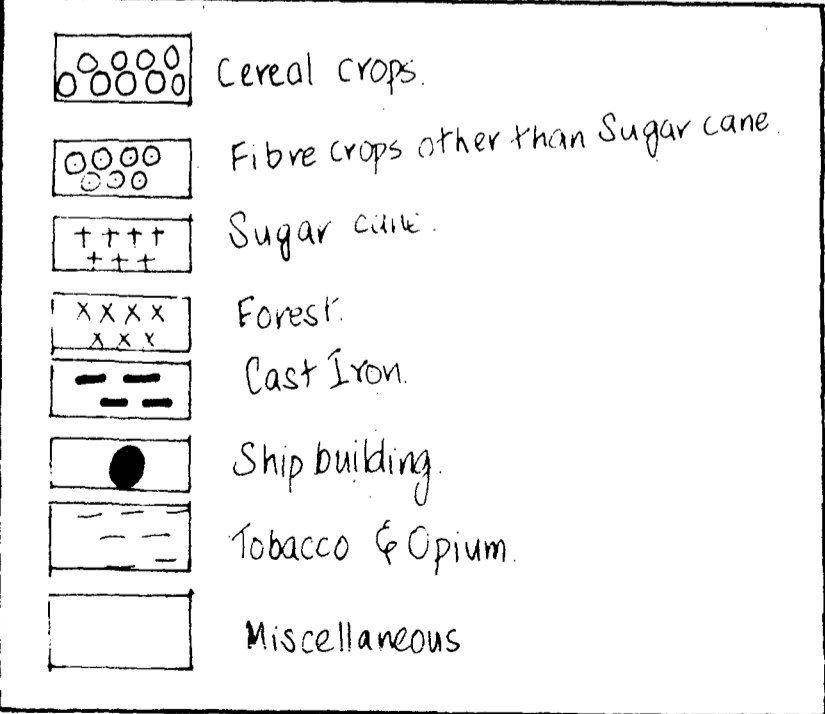 Cereal crops.
Fibre crops other than Sugar cane.
Sugar cane.
Forest.
Cast Iron.
Ship building.
Tobacco & Opium.
Miscellaneous